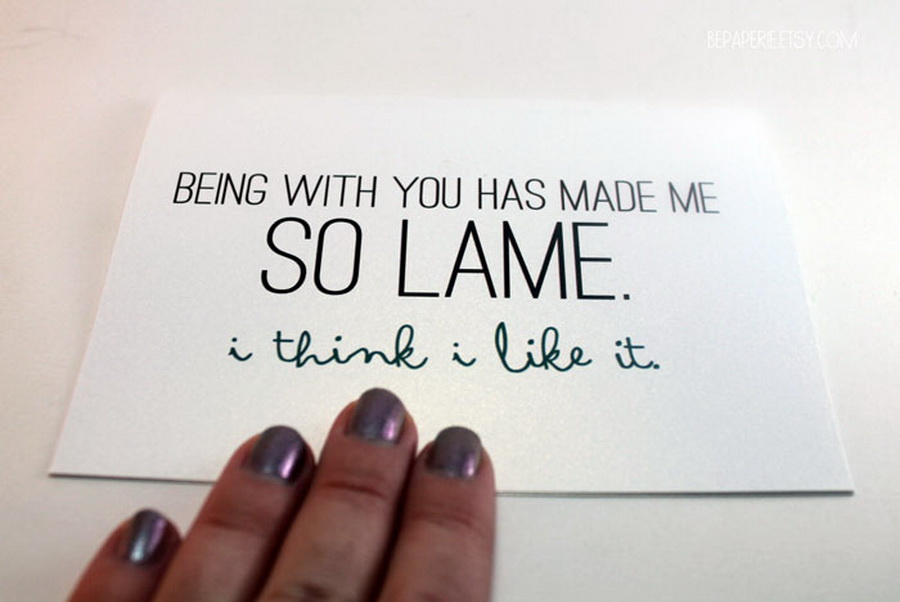 BEPAPERIE.ETSY.COM
BEING WITH YOU HAS MADE ME
SO LAME.
i think i like it.